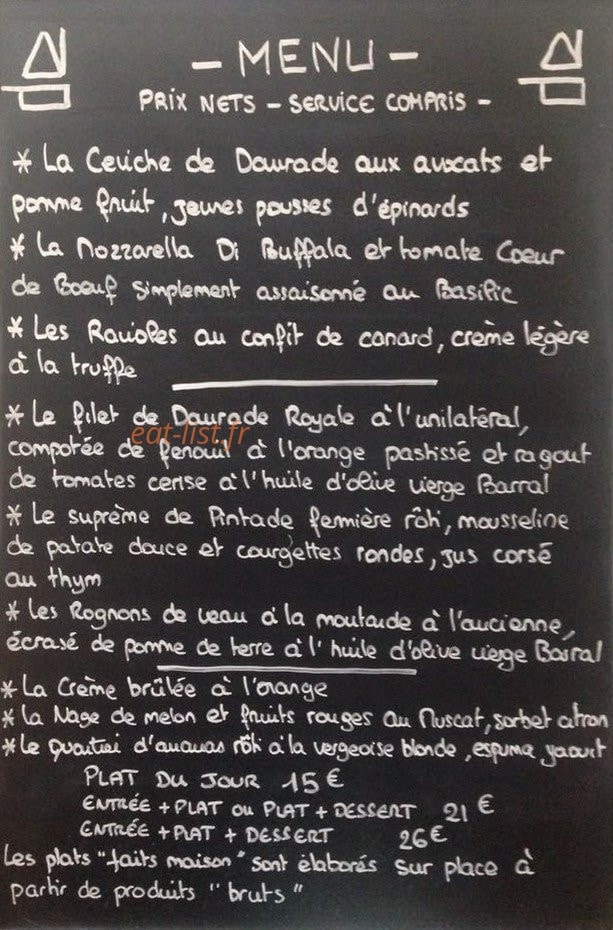 - MENU -
PRIX NETS - SERVICE COMPRIS -
* La Ceviche de Daurade aux avocats et
pomme fruit, jeunes pousses d'épinards
* La Mozzarella Di Buffala et tomate Coeur
de Boeuf simplement assaisonné au Basilic
* Les Ravioles au confit de canard, crème légère
à la truffe
* Le filet de Daurade Royale à l'unilatéral,
eat-list.fr
compotée de fenouil à l'orange pastissé et ragout
de tomates cerise à l'huile d'olive vierge Barral
* Le suprème de Pintade fermière rôti, mousseline
de patate douce et courgettes rondes, jus corsé
au thym
* Les Rognons de veau à la moutarde à l'ancienne,
écrasé de pomme de terre à l'huile d'olive vierge Barral
* La Crème brûlée à l'orange
* La Nage de melon et fruits rouges au Muscat, sorbet citron
* Le d'ananas rôti à la vergeoise blonde, espuma yaourt
PLAT DU JOUR 15 €
ENTRÉE + PLAT OU PLAT + DESSERT 21 €
ENTRÉE + PLAT + DESSERT 26 €
Les plats "faits maison" sont élaborés sur place à
partir de produits "bruts"